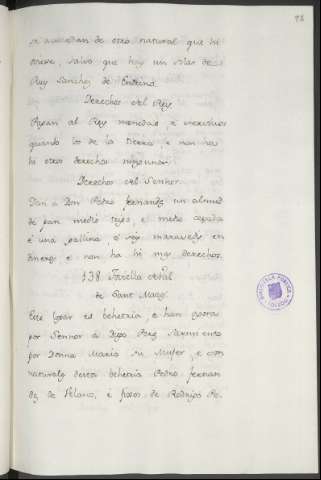 98
se acuerdan de otro natural que hi
oviese, salvo que hay un solar de
Ruy Sanchez de
Derechos del Rey
Pagan al Rey monedas, é servicios
quando los de la tierra, é non ha
hi otros derechos ningunos.
Derechos del Señor.
Dan á Don Pedro fernandez un almud
de pan medio trigo, é medio cebada
é una gallina, é seis maravedis en
dineros é non ha hi mas derechos.
138
de Sant Mage
Este logar es behetria, é han
por Sennor á Diego Perez Sarmiento
por Donna Maria su Muger, é son
naturales desta behetria Pedro fernan
dez de Velasco, é fijos de Rodrigo Ro.
BIBLIOTECA PUBLICA
TOLEDO